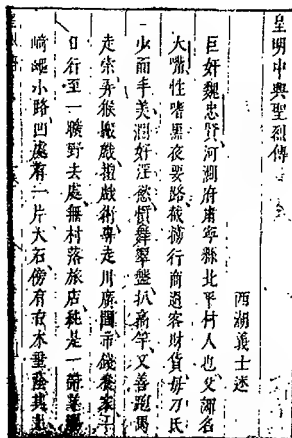 皇明中興聖烈傳
西湖義士述
巨奸魏忠賢河澗府肅寧縣北平村人也父諢名
大嘴性嗜黑夜要路截搒行商過客財貨母刀氏
少而丰美潤好淫慾慣舞翠盤扒高竿又善跑馬
走索弄猴搬戲撮戲術專走川廣鬧市錢養家
日行至一曠野去處無村落旅店純是一
崎嶇小路凹處有一片大石傍有古木